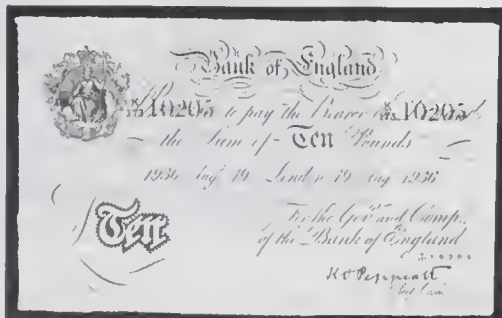 Bank of England
10205 to pay the Bearer 10205
the Sum of Ten Pounds
1936 Aug 19 London 19 Aug 1936
For the Gov.r and Comp.a
of the Bank of England
Ten